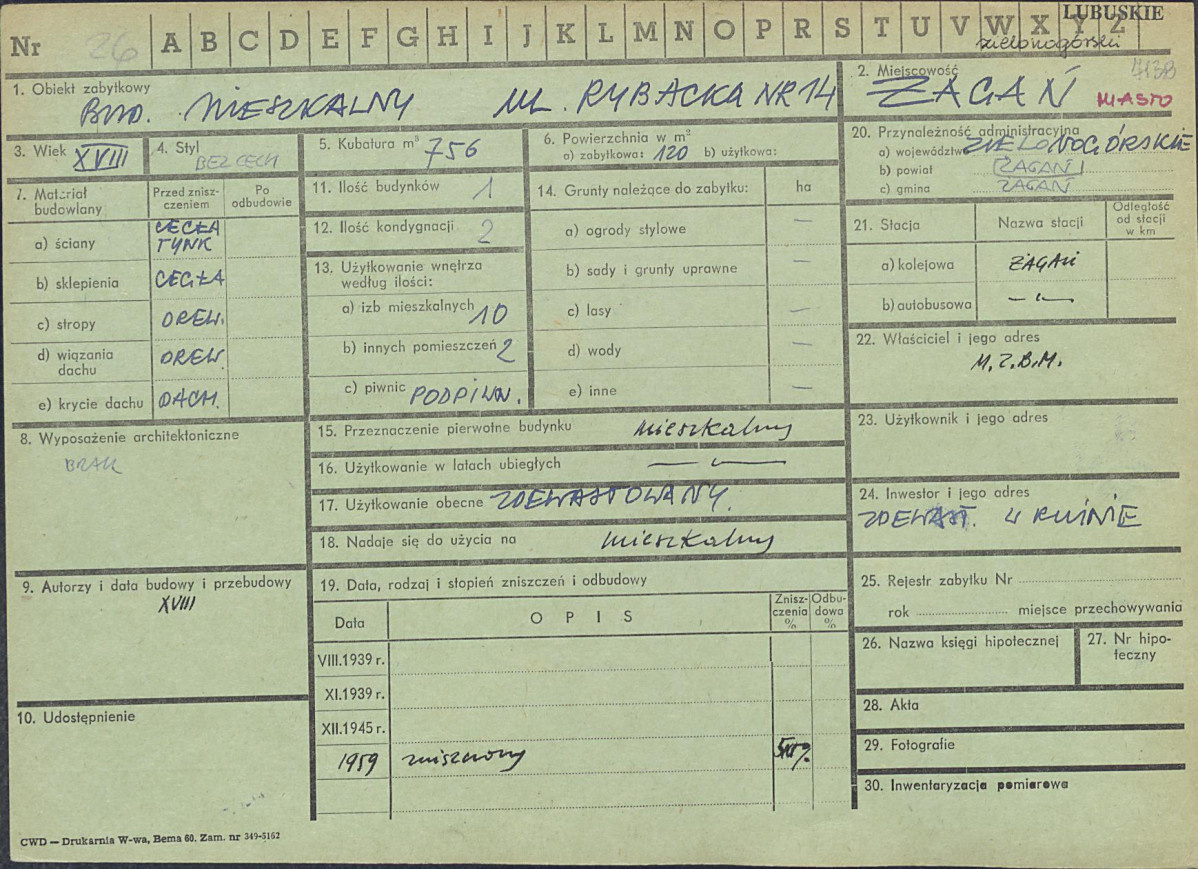 LUBUSKIE
Nr 26 A B C D E F G H I J K L M N O P R S T U V W X Y Z
zielonogórski
1. Obiekt zabytkowy
BUD. MIESZKALNY UL. RYBACKA NR 14
2. Miejscowość
ŻAGAŃ MIASTO
3. Wiek XVIII
4. Styl
BEZ CECH
5. Kubatura m³ 756
6. Powierzchnia w m²
a) zabytkowa: 120 b) użytkowa:
20. Przynależność administracyjna
a) województwo ZIELONOGÓRSKIE
b) powiat ŻAGAŃ
c) gmina ŻAGAŃ
7. Materiał budowlany
Przed zniszczeniem
Po odbudowie
a) ściany CEGŁA TYNK
b) sklepienia CEGŁA
c) stropy DREW.
d) wiązania dachu DREW.
e) krycie dachu DACH.
11. Ilość budynków 1
12. Ilość kondygnacji 2
13. Użytkowanie wnętrza
według ilości:
a) izb mieszkalnych 10
b) innych pomieszczeń 2
c) piwnic PODPIWN.
14. Grunty należące do zabytku: ha
a) ogrody stylowe —
b) sady i grunty uprawne —
c) lasy —
d) wody —
e) inne —
21. Stacja
Nazwa stacji
Odległość od stacji w km
a) kolejowa ŻAGAŃ
b) autobusowa — „ —
22. Właściciel i jego adres
M.Z.B.M.
8. Wyposażenie architektoniczne
BRAK
15. Przeznaczenie pierwotne budynku mieszkalny
16. Użytkowanie w latach ubiegłych — „ —
17. Użytkowanie obecne ZDEWASTOWANY.
18. Nadaje się do użycia na mieszkalny
23. Użytkownik i jego adres
24. Inwestor i jego adres
ZDEWAST. W RUINIE
9. Autorzy i data budowy i przebudowy
XVIII
19. Data, rodzaj i stopień zniszczeń i odbudowy
Data
O P I S
Zniszczenia %
Odbudowa %
VIII.1939 r.
XI.1939 r.
XII.1945 r.
1959 zniszczony
25. Rejestr zabytku Nr
rok miejsce przechowywania
26. Nazwa księgi hipotecznej
27. Nr hipoteczny
28. Akta
29. Fotografie
30. Inwentaryzacja pomiarowa
10. Udostępnienie
CWD — Drukarnia W-wa, Bema 60. Zam. nr 349-5162